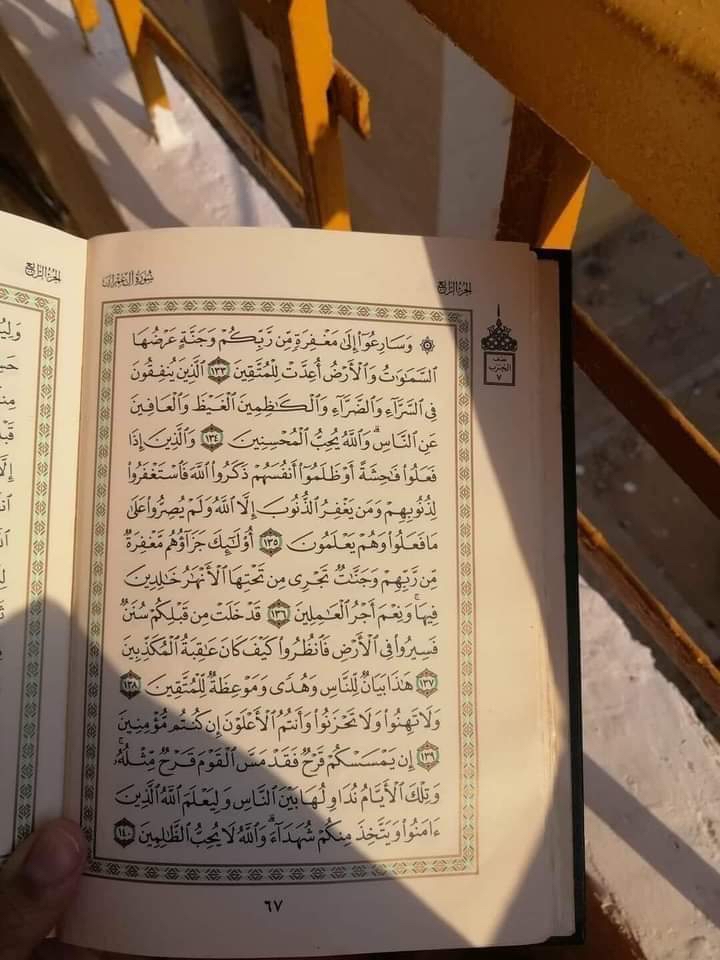 الجزء الرابع
سورة آل عمران
الجزء الرابع
۞ وَسَارِعُوٓا۟ إِلَىٰ مَغْفِرَةٍ مِّن رَّبِّكُمْ وَجَنَّةٍ عَرْضُهَا
ٱلسَّمَٰوَٰتُ وَٱلْأَرْضُ أُعِدَّتْ لِلْمُتَّقِينَ ١٣٣ ٱلَّذِينَ يُنفِقُونَ
فِى ٱلسَّرَّآءِ وَٱلضَّرَّآءِ وَٱلْكَٰظِمِينَ ٱلْغَيْظَ وَٱلْعَافِينَ
عَنِ ٱلنَّاسِ ۗ وَٱللَّهُ يُحِبُّ ٱلْمُحْسِنِينَ ١٣٤ وَٱلَّذِينَ إِذَا
فَعَلُوا۟ فَٰحِشَةً أَوْ ظَلَمُوٓا۟ أَنفُسَهُمْ ذَكَرُوا۟ ٱللَّهَ فَٱسْتَغْفَرُوا۟
لِذُنُوبِهِمْ وَمَن يَغْفِرُ ٱلذُّنُوبَ إِلَّا ٱللَّهُ وَلَمْ يُصِرُّوا۟ عَلَىٰ
مَا فَعَلُوا۟ وَهُمْ يَعْلَمُونَ ١٣٥ أُو۟لَٰٓئِكَ جَزَآؤُهُم مَّغْفِرَةٌ
مِّن رَّبِّهِمْ وَجَنَّٰتٌ تَجْرِى مِن تَحْتِهَا ٱلْأَنْهَٰرُ خَٰلِدِينَ
فِيهَا ۚ وَنِعْمَ أَجْرُ ٱلْعَٰمِلِينَ ١٣٦ قَدْ خَلَتْ مِن قَبْلِكُمْ سُنَنٌ
فَسِيرُوا۟ فِى ٱلْأَرْضِ فَٱنظُرُوا۟ كَيْفَ كَانَ عَٰقِبَةُ ٱلْمُكَذِّبِينَ
١٣٧ هَٰذَا بَيَانٌ لِّلنَّاسِ وَهُدًى وَمَوْعِظَةٌ لِّلْمُتَّقِينَ ١٣٨
وَلَا تَهِنُوا۟ وَلَا تَحْزَنُوا۟ وَأَنتُمُ ٱلْأَعْلَوْنَ إِن كُنتُم مُّؤْمِنِينَ
١٣٩ إِن يَمْسَسْكُمْ قَرْحٌ فَقَدْ مَسَّ ٱلْقَوْمَ قَرْحٌ مِّثْلُهُۥ ۚ
وَتِلْكَ ٱلْأَيَّامُ نُدَاوِلُهَا بَيْنَ ٱلنَّاسِ وَلِيَعْلَمَ ٱللَّهُ ٱلَّذِينَ
ءَامَنُوا۟ وَيَتَّخِذَ مِنكُمْ شُهَدَآءَ ۗ وَٱللَّهُ لَا يُحِبُّ ٱلظَّٰلِمِينَ ١٤٠
نصف
الحزب
٧
٦٧
الجزء الرابع